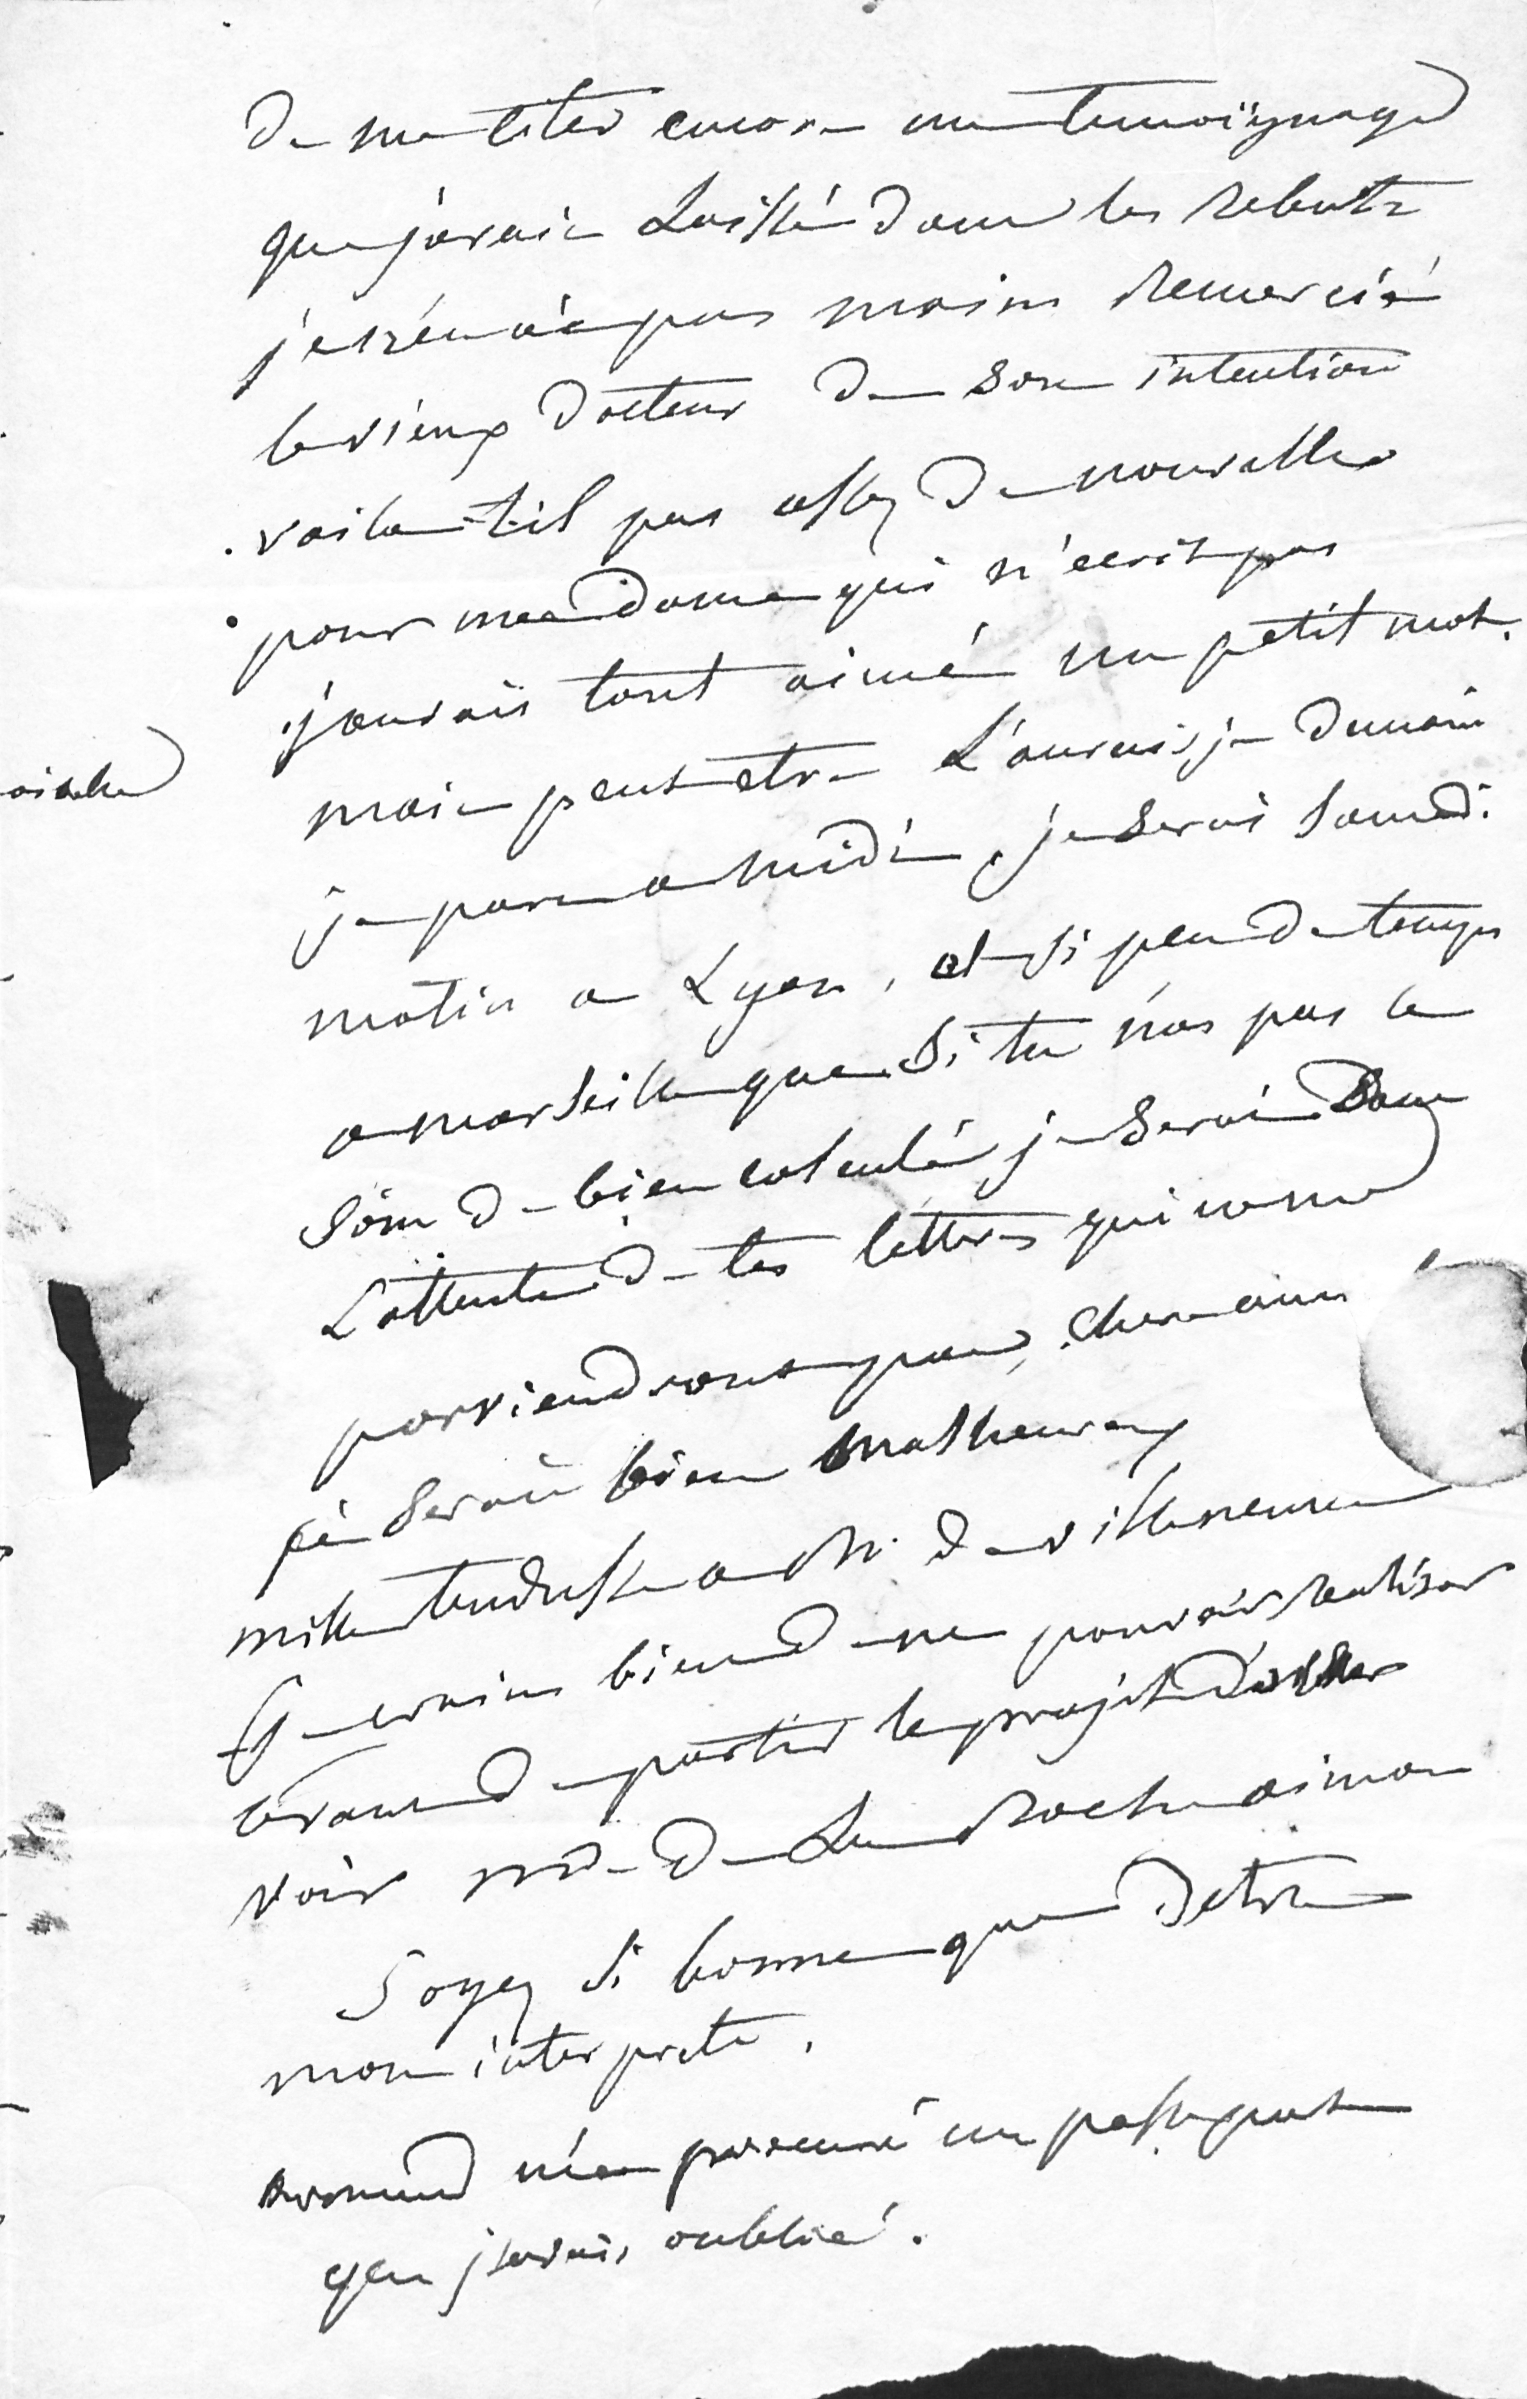 de me citer encore un temoïgnage
que j'avais Laissé dans les rebuts
je n'en ai pas moins remercié
le vieux docteur de son intention
voila-t-il pas assez de nouvelles
pour madame qui n'ecrit pas
j'aurais tant aimé un petit mot.
mais peut etre L'aurais je demain
je pars a midi, je serai samedi
matin a Lyon, et si peu de temps
a marseille que si tu n'as pas le
soin de bien calculé je serai Dans
L'attente de tes lettres qui ne me
parviendront pas, chere amie
je serai bien malheureux
mille tendresse a Mr de villeneuve
je crains bien de ne pouvoir realiser
avant de partir le projet d'aller
voir md de La Roche aimon
Soyez si bonne que detre
mon interprete.
m'a procuré un passeport
que j'avais oublié.